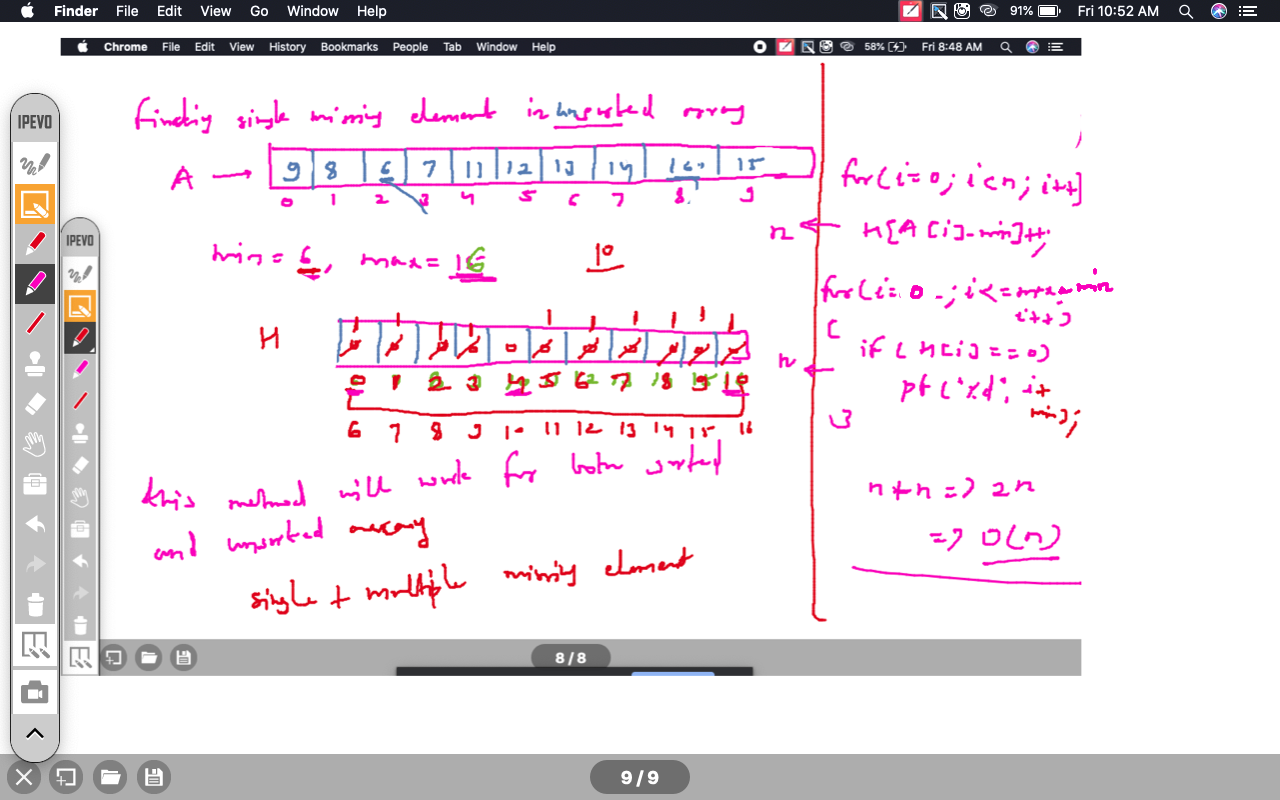 Finder File Edit View Go Window Help 91% Fri 10:52 AM
Chrome File Edit View History Bookmarks People Tab Window Help 58% Fri 8:48 AM
IPEVO
IPEVO
finding single missing element in unsorted array
A → 9 8 6 7 11 12 13 14 16 15
0 1 2 3 4 5 6 7 8 9
min = 6, max = 16 10
H
1 1 1 1 1 1 1 1 1 1
0 0 0 0 0 0 0 0 0 0 0
0 1 2 3 4 5 6 7 8 9 10
6 7 8 9 10 11 12 13 14 15 16
this method will work for both sorted
and unsorted array
single + multiple missing element
for(i=0; i<n; i++)
n ← H[A[i]-min]++;
for(i=0; i<=max-min
i++)
{
n ← if(H[i]==0)
pf('%d', i+
min);
}
n+n => 2n
=> O(n)
8 / 8
9 / 9